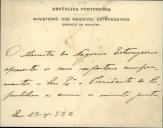 REPÚBLICA PORTUGUESA
MINISTÉRIO DOS NEGÓCIOS ESTRANGEIROS
GABINETE DO MINISTRO
O Ministro dos Negocios Estrangeiros
apresenta os seus respeitosos cumpri
mentos a Sua Exª o Presidente da Re
publica e envia a minuta junta
Em 22-4-922